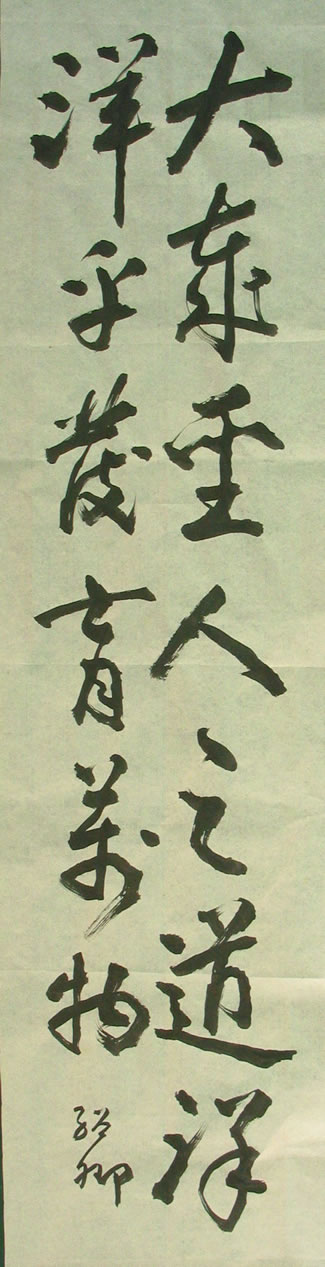 大哉聖人之道洋
洋乎發育萬物